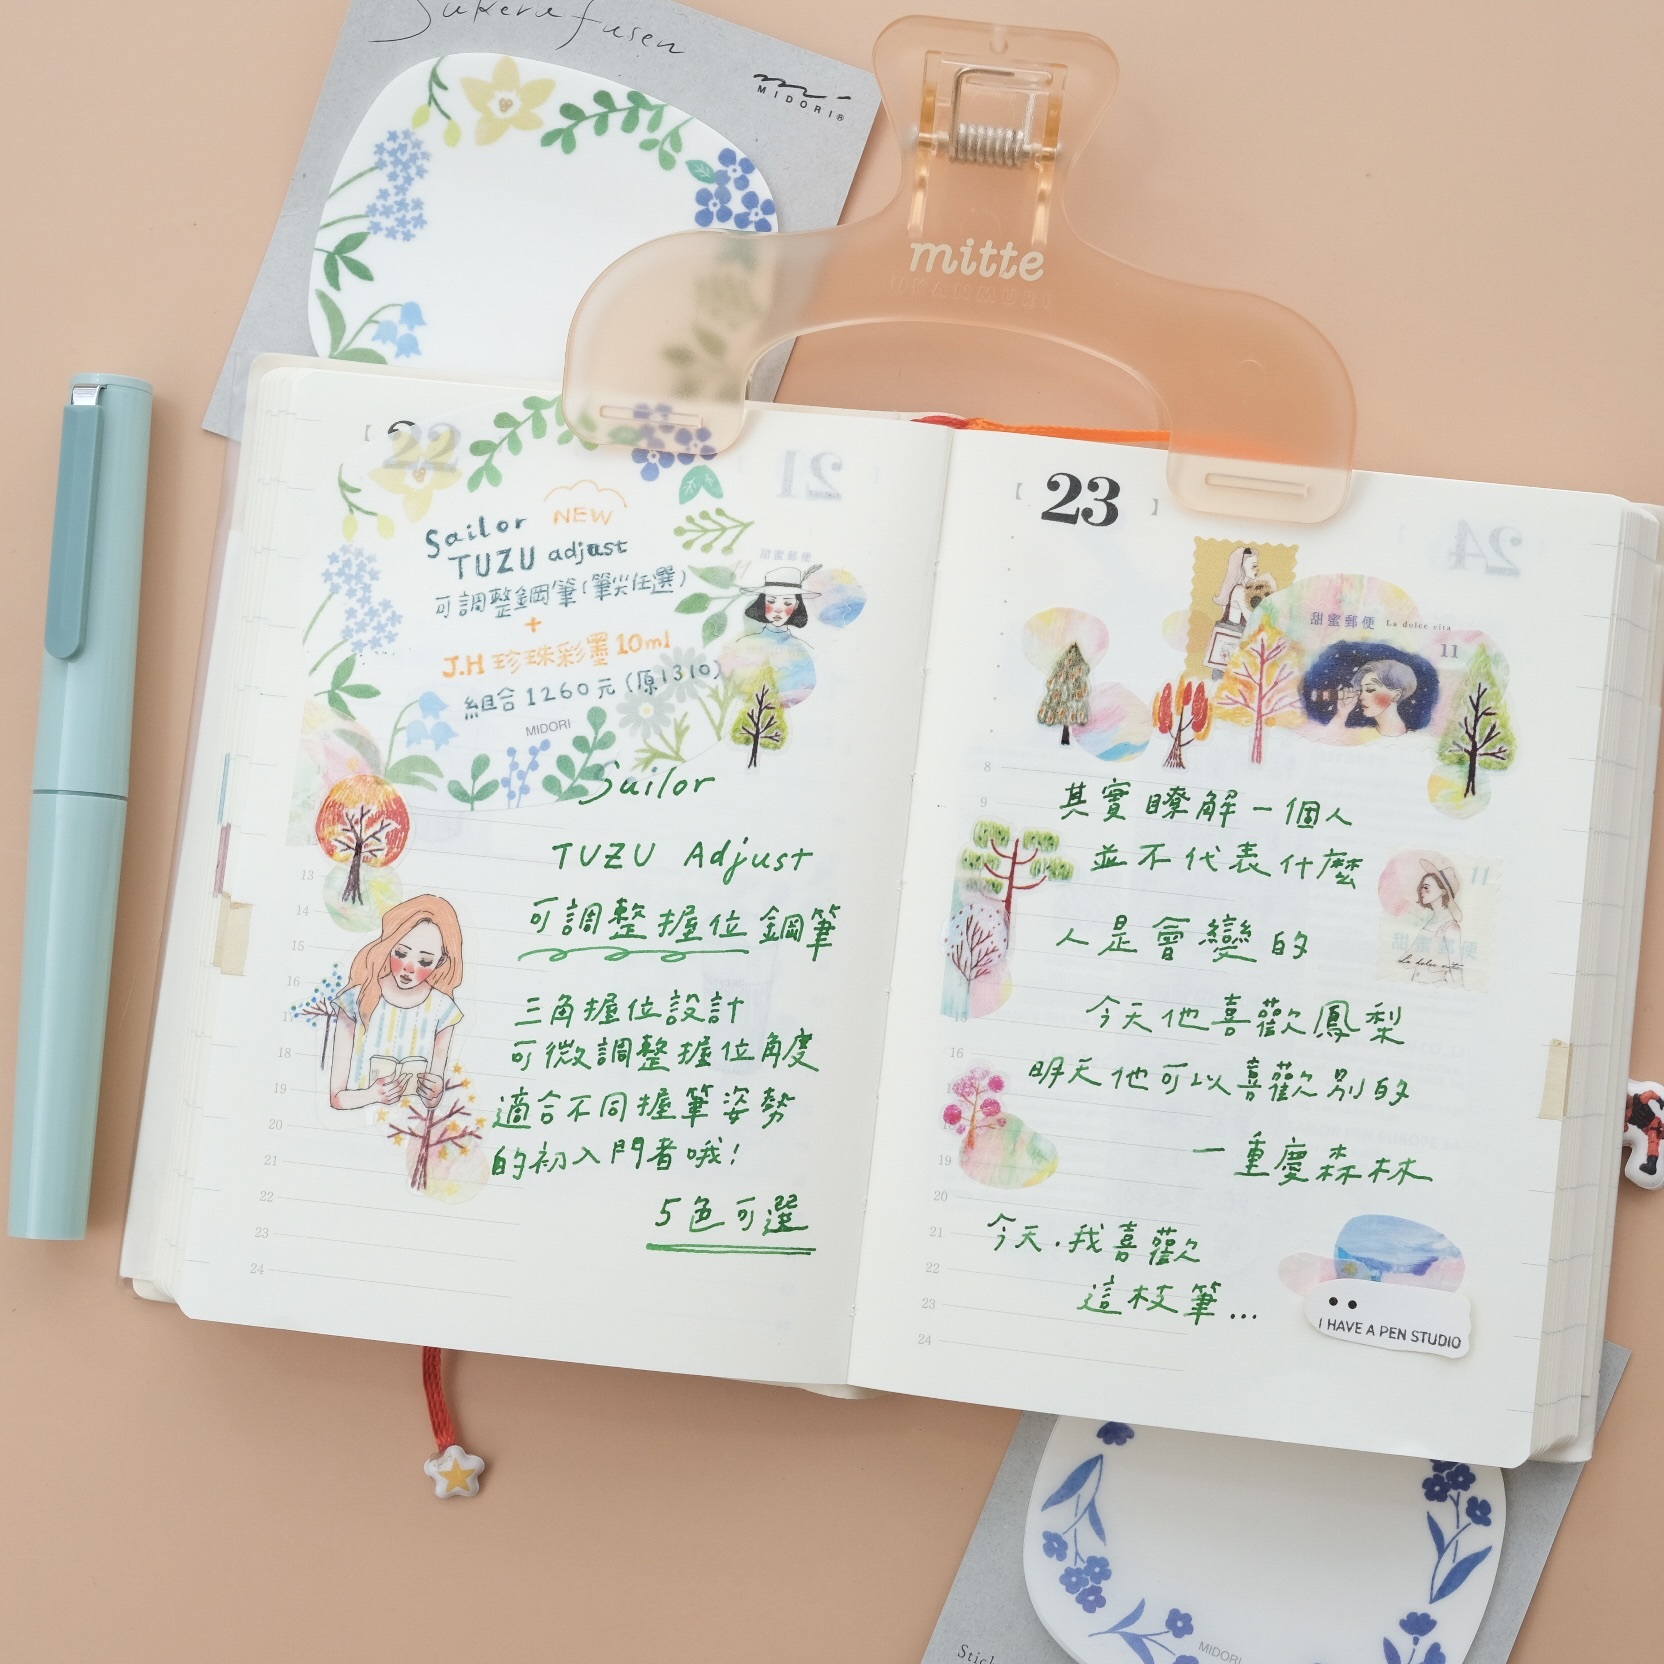 Sukeru fusen
MIDORI®
mitte
22
21
NEW
Sailor
TUZU adjust
可調整鋼筆(筆尖任選)
+
J.H 珍珠彩墨 10ml
組合1260元(原1310)
MIDORI
甜蜜郵便
11
Sailor
TUZU Adjust
可調整握位鋼筆
三角握位設計
可微調整握位角度
適合不同握筆姿勢
的初入門者哦!
5色可選
13
14
15
16
17
18
19
20
21
22
23
24
23
24
甜蜜郵便 La dolce vita
11
其實瞭解一個人
並不代表什麼
人是會變的
今天他喜歡鳳梨
明天他可以喜歡別的
一重慶森林
今天.我喜歡
這枝筆...
11
甜蜜郵便
La dolce vita
I HAVE A PEN STUDIO
8
9
15
16
19
20
21
22
23
24
MIDORI